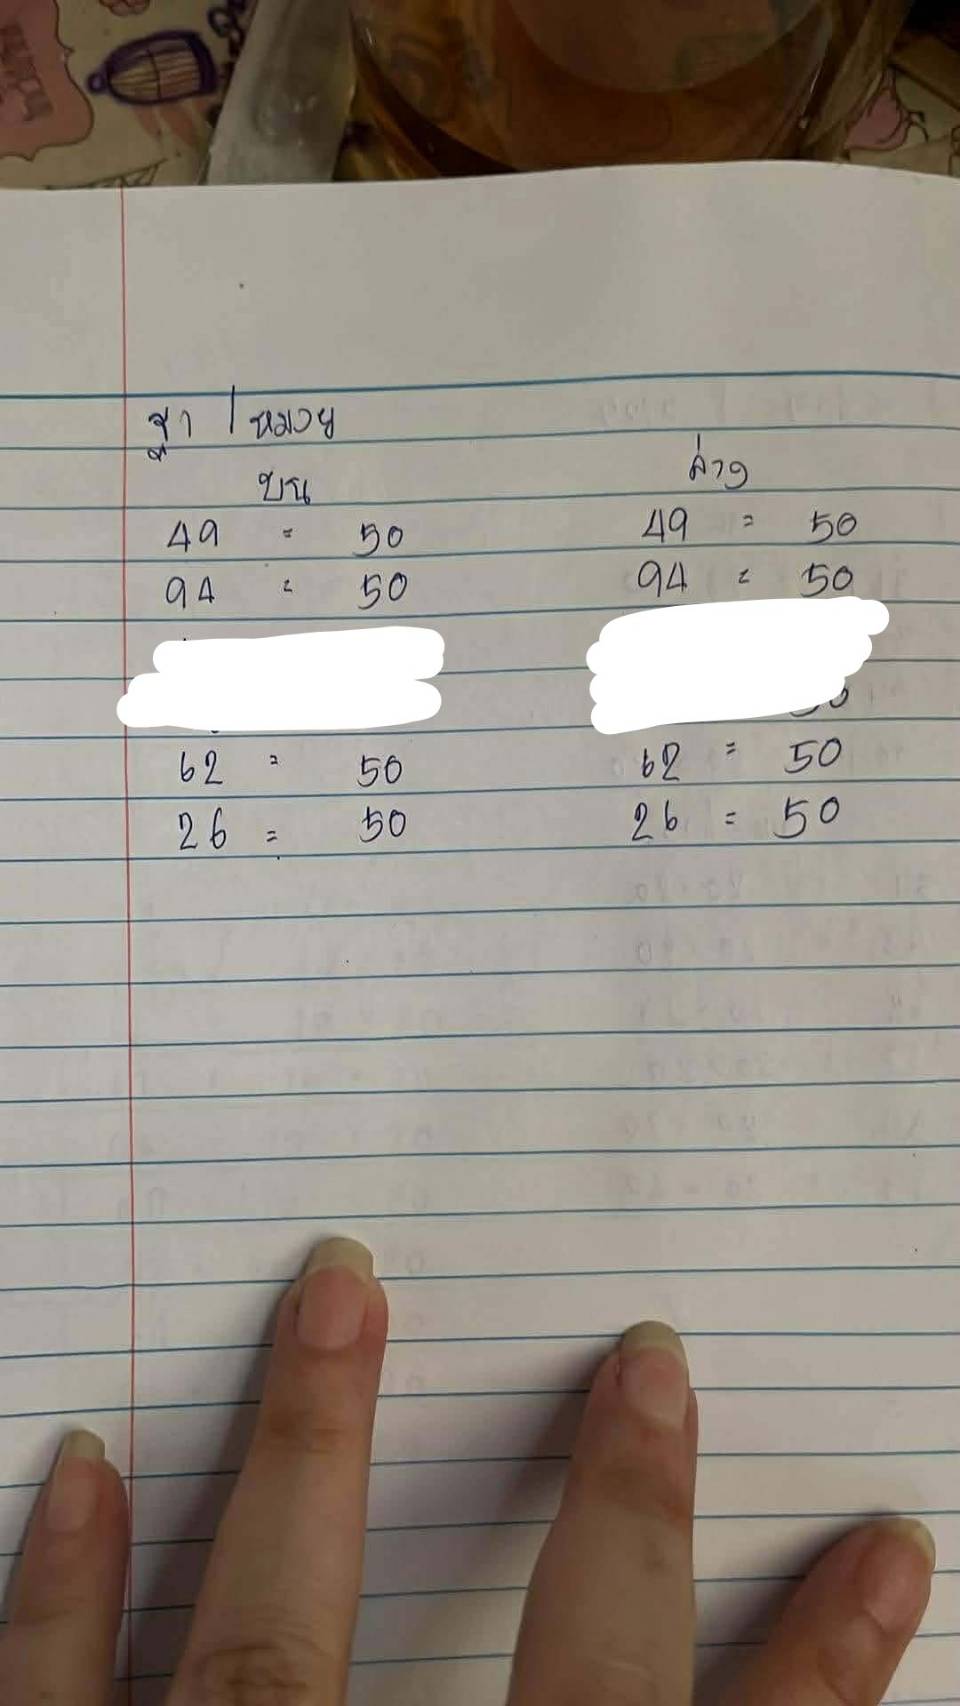 ฐา / หมวย
บน ล่าง
49 = 50 49 = 50
94 = 50 94 = 50
50
62 = 50 62 = 50
26 = 50 26 = 50